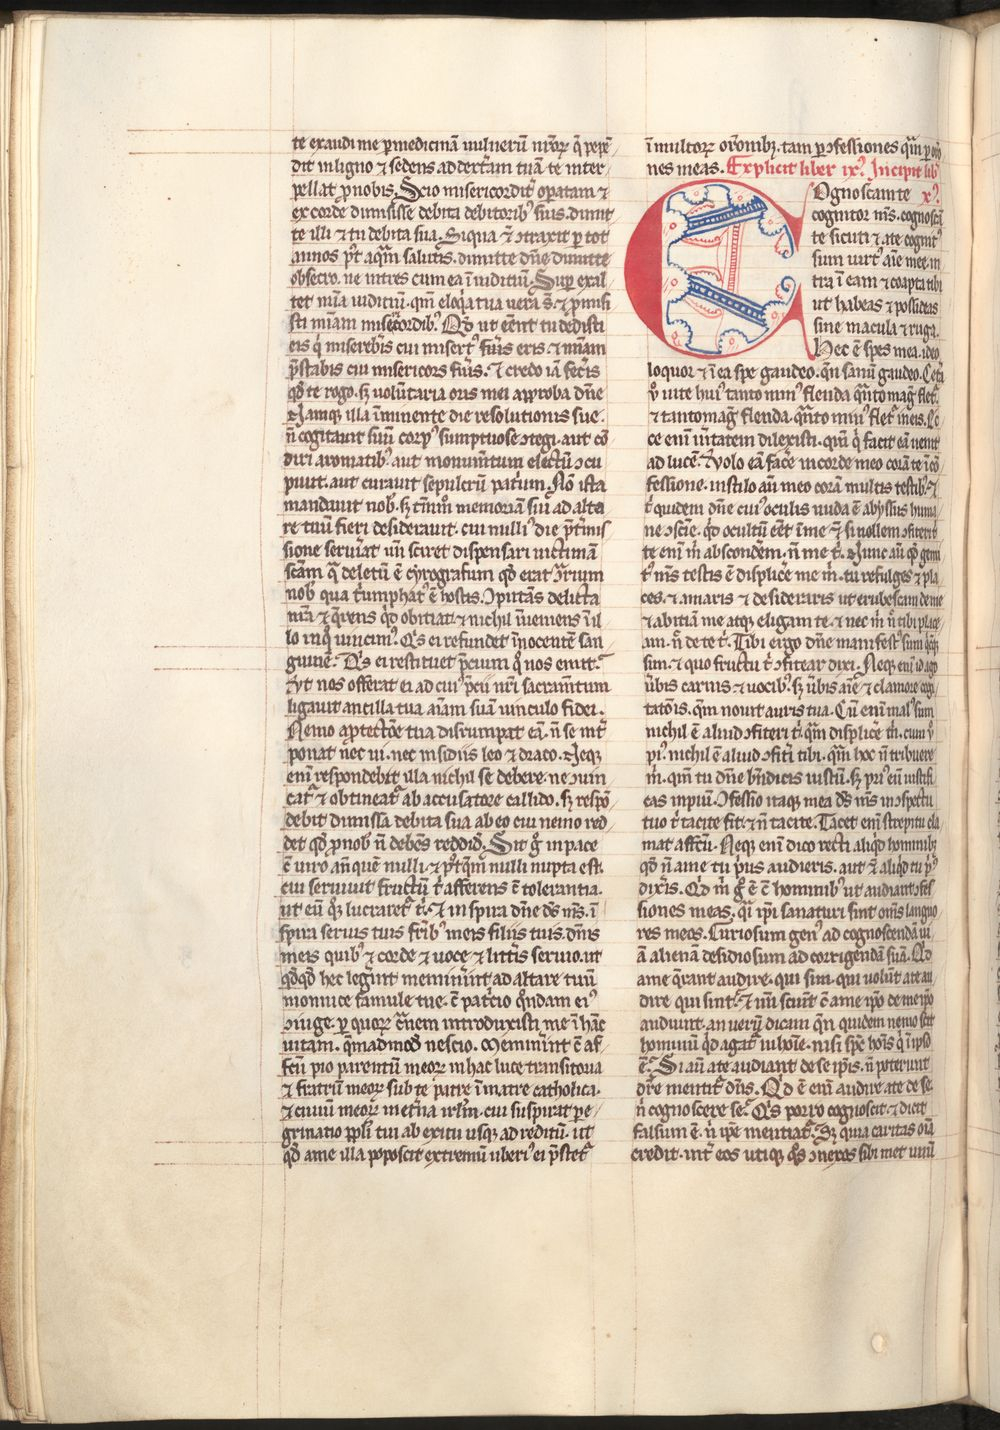 te exaudi me ꝑ medicinā uulnerū nr̄oꝝ q̄ pepē
dit in ligno ⁊ sedens ad dextram tuā te inter
pellat ꝓ nobis. Scio misericordit̉ oꝑatam ⁊
ex corde dimisisse debita debitorib᷒ suis. dimit
te illi ⁊ tu debita sua. Siqua ⁊̄ ꝯtraxit ꝑ tot
annos p᷒t aquā salutis. dimitte dn̄e dimitte
obsecro. ne intres cum ea ī iuditiū. Suꝑ exal
tet mīa iuditiū. qm̄ eloq̄a tua uera s̄ ⁊ ꝓmisi
sti mīam misericordib᷒. Qd̄ ut eēnt tu dedisti
eis q̇ misereb̄is cui misert᷒ fūis eris ⁊ mīam
p̄stabis cui misericors fūis. ⁊ credo iā fecis
qd̄ te rogo. sꝫ uolūtaria oris mei approba dn̄e
Namqꝫ illa īminente die resolutionis sue.
n̄ cogitauit suū corp᷒ sumptuose ꝯtegi. aut cō
diri aromatib᷒. aut monum̄tum electū ꝯcu
piuit. aut curauit sepulcrū patriū. Nō ista
mandauit nob᷒. sꝫ tm̄m° memoriam sui ad alta
re tuū fieri desiderauit. cui nulli᷒ die p̄t̉mis
sione seruīat un̄ sciret dispensari uictimā
sc̄am q̄ deletū ē cyrografum qd̄ erat ꝯ̉rium
nob᷒ qua t̉umphat᷒ ē hostis. ꝯputās delicta
nr̄a ⁊ q̄rens q̇d obiciat ⁊ nichil īueniens ī il
lo in q̇ uincim᷒. Q̇s ei refundet īnocentē san
guinē. Q̇s ei restituet p̄cium q̇ nos emit.
⁊ ut nos offerat ei ad cui᷒ p̄cii nr̄i sacram̄tum
ligauit ancilla tua aīam suā uinculo fidei.
Nemo a ꝓtectōe tua disrumpat eā. n̄ se int̉
ponat nec ui. nec insidiis leo ⁊ draco. Neqꝫ
enī respondebit illa nichil se debere. ne ꝯuin
cat̉ ⁊ obtineat̉ ab accusatore callido. sꝫ respō
debit dimissa debita sua ab eo cui nemo red
det qd̄ ꝓ nob᷒ n̄ debēs reddid̉. Sit g̊ in pace
c̄ uiro an̄ quē nulli ⁊ p᷒t quē nulli nupta est.
cui seruiuit fructū t̉ afferens c̄ tolerantia.
ut eū q̊ꝫ lucraret̉ t̉. ⁊ inspira dn̄e ds̄ ms̄. ī
spira seruis tuis fr̄ib᷒ meis filiis tuis. dn̄is
meis quib᷒ ⁊ corde ⁊ uoce ⁊ litt̉is seruio. ut
qd̄qd̄ hec leg̉int memin̉int ad altare tuū
monnice famule tue. c̄ pat̉cio q̊ndam ei᷒
ꝯiuge. ꝑ quoꝝ c̉nem introduxisti me ī hāc
uitam. q̄madmod̄ nescio. Memin̉int c̄ af
fcū pio parentū meoꝝ in hac luce transitoria
⁊ fratrū meoꝝ sub te patre ī matre catholica.
⁊ ciuiū meoꝝ in et̉na irl̄m. cui suspirat pe
grinatio ppl̄i tui ab exitu usqꝫ ad reditū. ut
qd̄ a me illa poposcit extremū uberi᷒ ei p̄stet̉
ī multoꝝ or̄onibꝫ. tam ꝑ ꝯfessiones quā ꝑ or̄o
nes meas. Explicit liber ix᷒. Incipit lib̉
x᷒.
COgnoscam te
cognitor ms̄. cognoscā
te sicuti ⁊ a te cognit᷒
sum uirt᷒ aīe mee. in
tra ī eam ⁊ coapta tibi
ut habeas ⁊ possideas
sine macula ⁊ ruga.
Hec ē spes mea. ideo
loquor ⁊ ī ea spe gaudeo. qn̄ sanū gaudeo. Cet̉a
v̊ uite hui᷒ tanto min᷒ flenda q̄nto mag̉ flet̉.
⁊ tanto mag̉ flenda. q̄nto min᷒ flet̉ ī eis. Ec
ce enī ūitatem dilexisti. qm̄ q̇ facit eā uenit
ad lucē. Uolo eā facẻ in corde meo corā te ī cō
fessione. in stilo aū meo corā multis testib᷒. ⁊
t̉ quidem dn̄e cui᷒ oculis nuda ē abyssus huma
ne ꝯscīe. q̇d ocultū eēt ī me ⁊̄ si nollem ꝯfiteri t̉
te enī m̉ absconderem. n̄ me t̉. Nunc aū qd̄ gemi
t᷒ ms̄ testis ē displicẻ me m̉. tu refulges ⁊ pla
ces. ⁊ amaris ⁊ desideraris ut erubescam de me
⁊ abiciā me atqꝫ eligam te. ⁊ nec m̉ n̄ tibi place
am. n̄ de te t̉. Tibi ergo dn̄e manifest᷒ sum q̇cūqꝫ
sim. ⁊ quo fructu t̉ ꝯfitear dixi. Neqꝫ enī id ago
ūbis carnis ⁊ uocib᷒. sꝫ ūbis aīe ⁊ clamore cogi
tatōis. quē nouit auris tua. Cū enī mal᷒ sum
nichil ē aliud ꝯfiteri t̉. q̄m displicẻ m̉. cum v̊
pi᷒. nichil ē aliud ꝯfit̉i tibi. q̄m hoc n̄ tribuere
m̉. qm̄ tu dn̄e bn̄dicis iustū. sꝫ pri᷒ eū iustifi
cas inpiuū. ꝯfessio itaqꝫ mea ds̄ ms̄ in ꝯspectu
tuo t̉ tacite fit. ⁊ n̄ tacite. Tacet enī strepitu cla
mat affcū. Neqꝫ enī dico recti aliq̇d hominibꝫ
qd̄ n̄ a me tu p̉us audieris. aut ⁊̄ aliq̇d tu p̉᷒
dix̉is. Q̇d m̉ g̊ ē c̄ hominib᷒ ut audiant ꝯfes
siones meas. q̄i ip̄i sanaturi sint om̄s languo
res meos. Curiosum gen᷒ ad cognoscendā ui
tā alienā desidiosum ad corrigendā suā. Q̇d
a me q̄rant audire. qui sim. qui nolūt a te au
dire qui sint. ⁊ un̄ sciunt c̄ a me ip̄o de me ip̄o
audiunt. an uerū dicam qn̄ quidem nemo scit
hominū q̇d agat̉ ī hoīe. nisi sp̄c hoīs q̇ ī ip̄o
ē. Si aū a te audiant de se ip̄is. n̄ poterunt
dic̉e mentit̉ dn̄s. Q̇d ē enī audire a te de se.
n̉ cognoscere se. Q̇s porro cognoscit. ⁊ dicit
falsum ē. n̉ ip̄e mentiat̉. Sꝫ quia caritas oīa
credit. int̉ eos utiqꝫ q̊s ꝯnexos sibi met unū